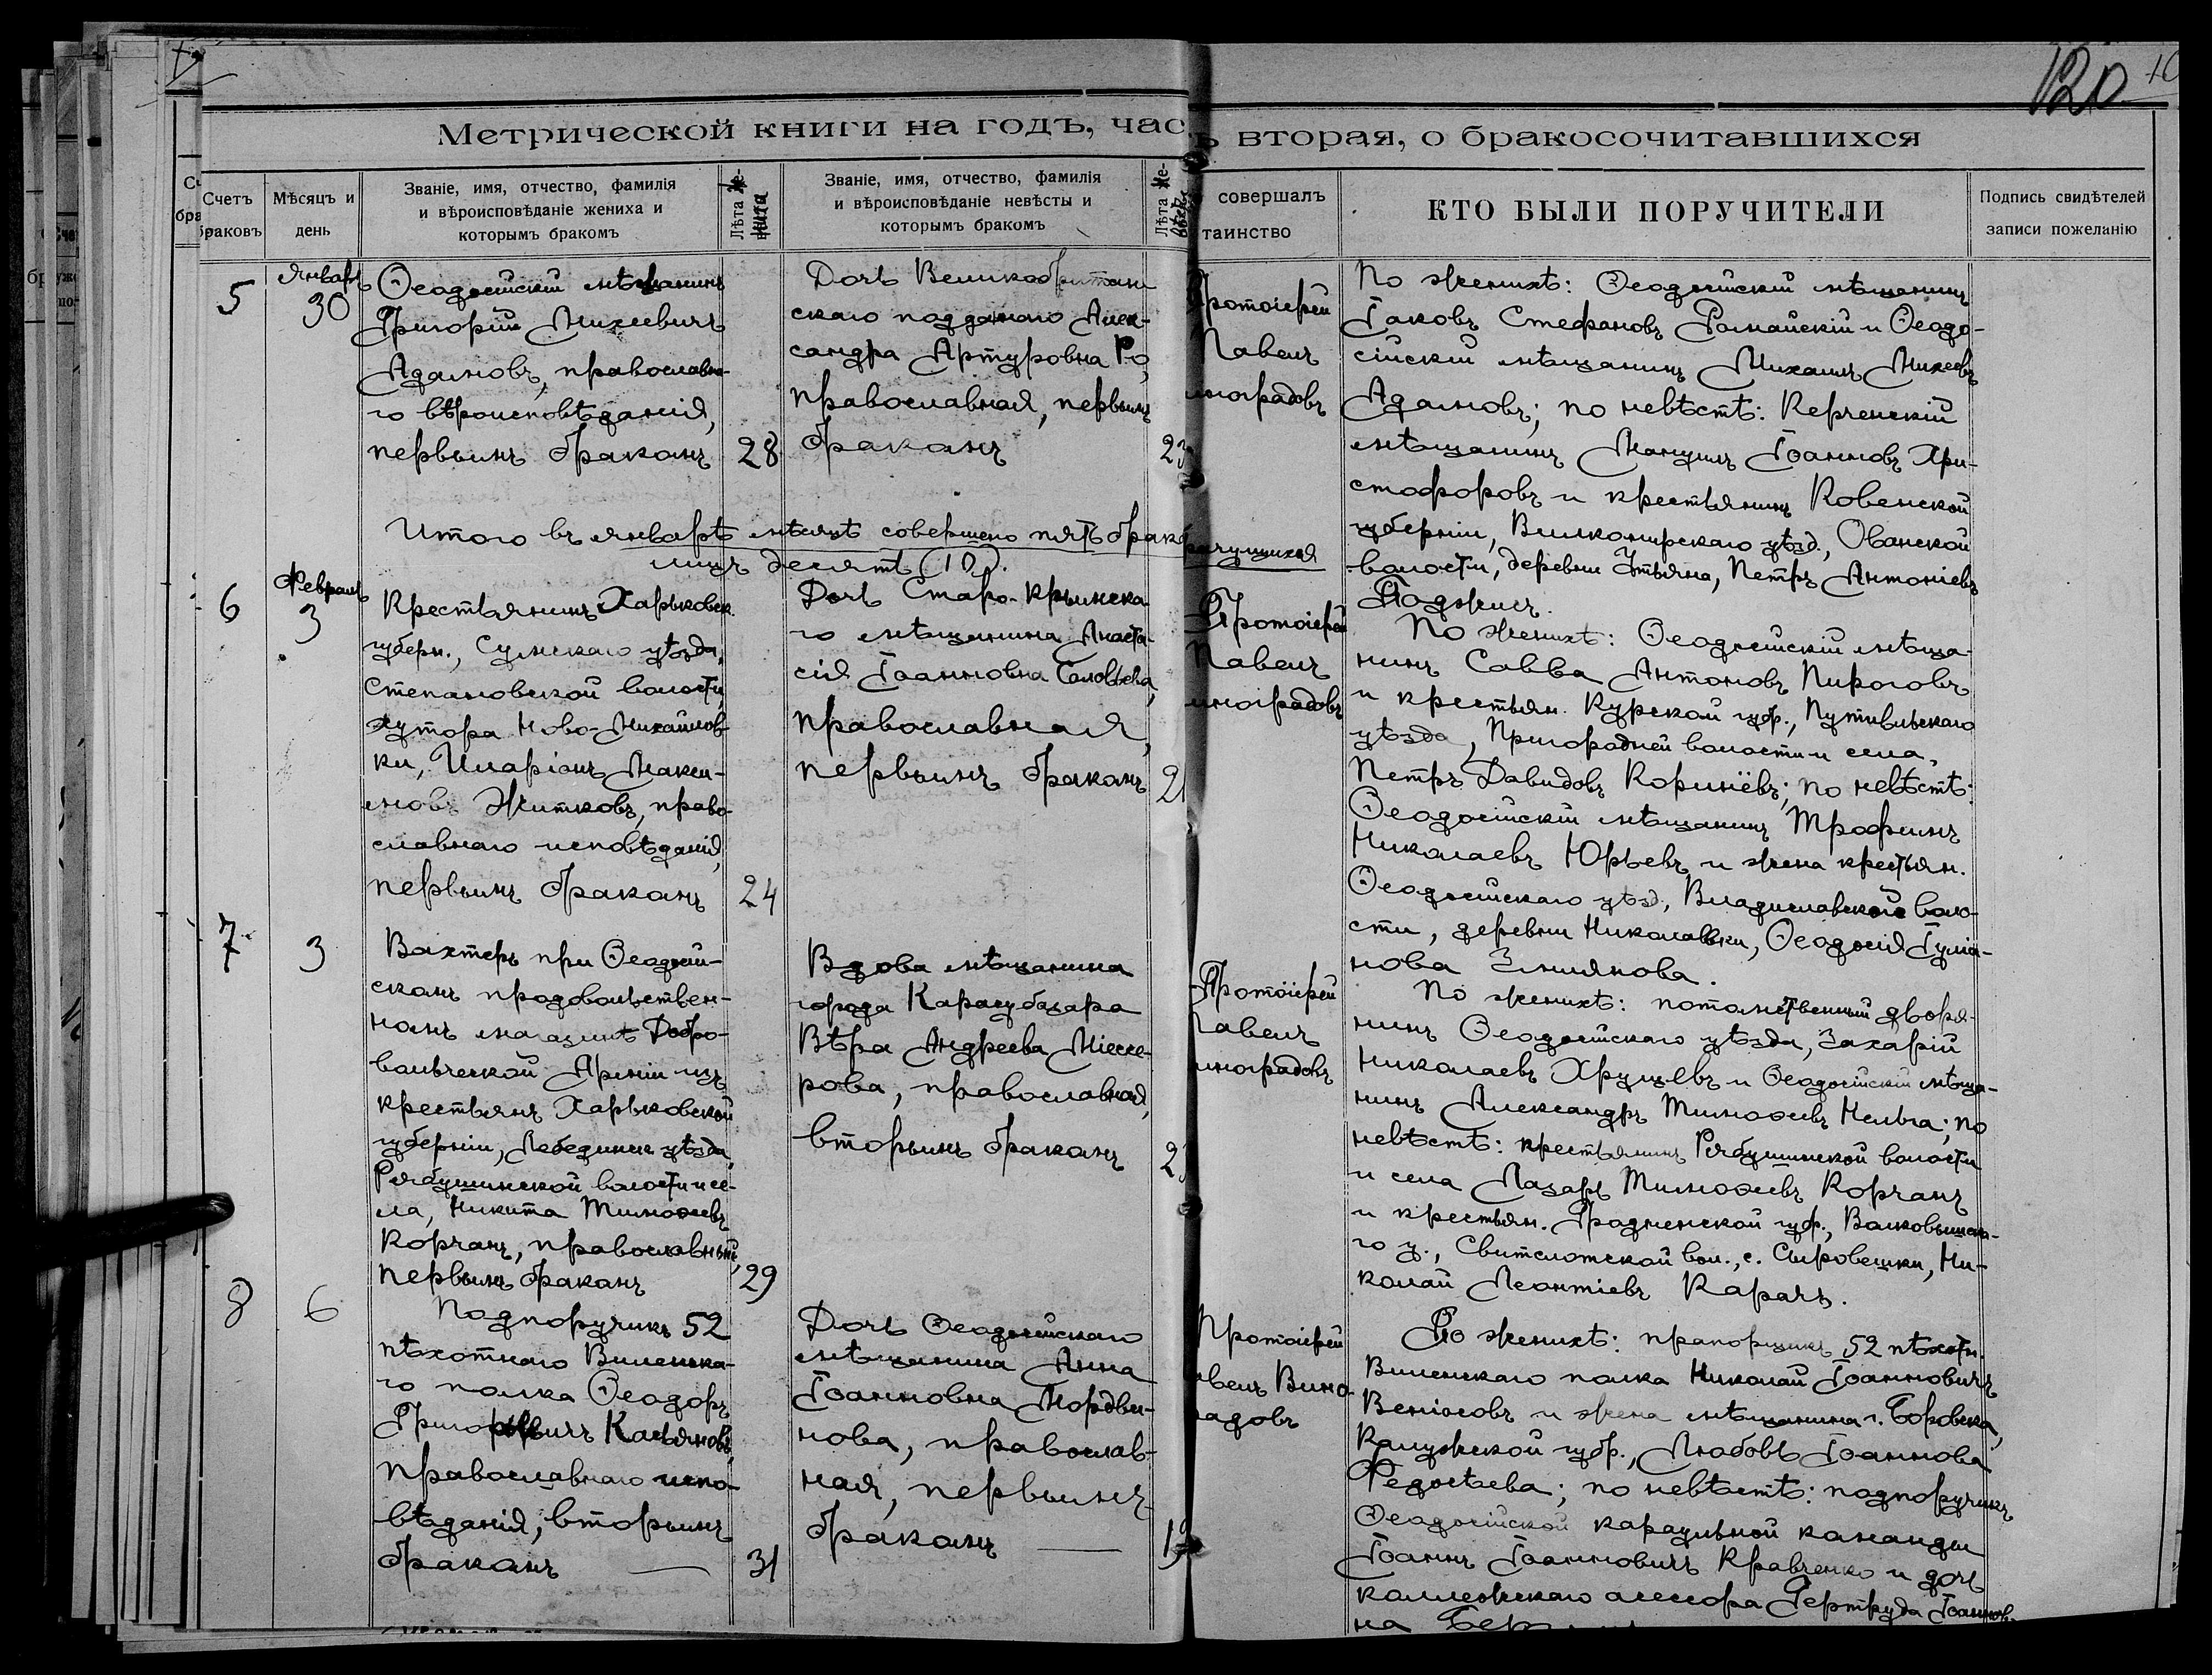 120
Метрической книги на годъ, час
ь вторая, о бракосочитавшихся
Счетъ
браковъ
Мѣсяцъ и
день
Званіе, имя, отчество, фамилія
и вѣроисповѣданіе жениха и
которымъ бракомъ
Лѣта же-
ниха
Званіе, имя, отчество, фамилія
и вѣроисповѣданіе невѣсты и
которымъ бракомъ
Лѣта
совершалъ
таинство
КТО БЫЛИ ПОРУЧИТЕЛИ
Подпись свидѣтелей
записи пожеланію
5
Январь
30
Ѳеодосійскій мѣщанинъ
Григорій Михеевичъ
Адамовъ, православна-
го вѣроисповѣданія,
первымъ бракомъ
28
Дочь Великобритан
скаго подданаго Алек-
сандра Артуровна Ро,
православная, первымъ
бракомъ
23
Протоіерей
Павелъ
иноградовъ
По женихѣ: Ѳеодосійскій мѣщанинъ
Іаковъ Стефановъ Романскій и Ѳеодо-
сійскій мѣщанинъ Михаилъ Михеевъ
Адамовъ; по невѣстѣ: Керченскій
мѣщанинъ Мануилъ Іоанновъ Хри-
стофоровъ и крестьянинъ Ковенской
губерніи, Вилкомирскаго уѣзд., Ованской
волости, деревни Утьяна, Петръ Антоніевъ
Итого въ январѣ мѣсяцѣ совершено пять брак
лицъ десять (10).
6
Февраль
3
Крестьянинъ Харьковск.
губерн., Сумскаго уѣзда,
Степановской волости,
хутора Ново-Михайлов-
ки, Иларіонъ Макси-
мовъ Житковъ, право-
славнаго исповѣданія,
первымъ бракомъ
24
Дочь Старо-Крымска-
го мѣщанина Анаста-
сія Іоанновна Соловьева,
православная,
первымъ бракомъ
21
Протоіерей
Павелъ
иноградовъ
По женихѣ: Ѳеодосійскій мѣща-
нинъ Савва Антоновъ Пироговъ
и крестьян. Курской губ., Путивльскаго
уѣзда, Пригородней волости и села,
Петръ Давидовъ Коринёвъ; по невѣстѣ:
Ѳеодосійскій мѣщанинъ Трофимъ
Николаевъ Юрьевъ и жена крестьян.
Ѳеодосійскаго уѣзд., Владиславской воло-
сти, деревни Николаевки, Ѳеодосія Іуліа-
нова
7
3
Вахтеръ при Ѳеодосій-
скомъ продовольствен-
номъ магазинѣ Добро-
вольческой Арміи изъ
крестьянъ Харьковской
губерніи, Лебединск. уѣзда,
Рябушинской волости и се-
ла, Никита Тимоѳеевъ
Корчанъ, православный,
первымъ бракомъ
29
Вдова мѣщанина
города Карасубазара
Вѣра Андреева
рова, православная,
вторымъ бракомъ
Протоіерей
Павелъ
иноградовъ
По женихѣ: потомственный дворя-
нинъ Ѳеодосійскаго уѣзда, Захарій
Николаевъ Хрущевъ и Ѳеодосійскій мѣща-
нинъ Александръ Тимоѳеевъ Нельга; по
невѣстѣ: крестьянинъ Рябушинской волости
и села Лазарь Тимоѳеевъ Корчанъ
и крестьян. Гродненской губ., Волковышска-
го у., Свитслотской вол., с. Сыровешки, Ни-
колай Леонтіевъ Карачъ.
8
6
Подпоручикъ 52
пѣхотнаго Виленска-
го полка Ѳеодоръ
Григорьевичъ Касьяновъ,
православнаго испо-
вѣданія, вторымъ
бракомъ
31
Дочь Ѳеодосійскаго
мѣщанина Анна
Іоанновна Мордви-
нова, православ-
ная, первымъ
бракомъ
Протоіерей
авелъ Вино-
радовъ
По женихѣ: прапорщикъ 52 пѣхотн.
Виленскаго полка Николай Іоанновичъ
Веніосовъ и жена мѣщанина г. Боровска,
Калужской губ., Любовь Іоаннова
Федосѣева; по невѣстѣ: подпоручикъ
Ѳеодосійской караульной команды
Іоаннъ Іоанновичъ Кравченко и дочь
коллежскаго асессора Гертруда Іоаннов-
на